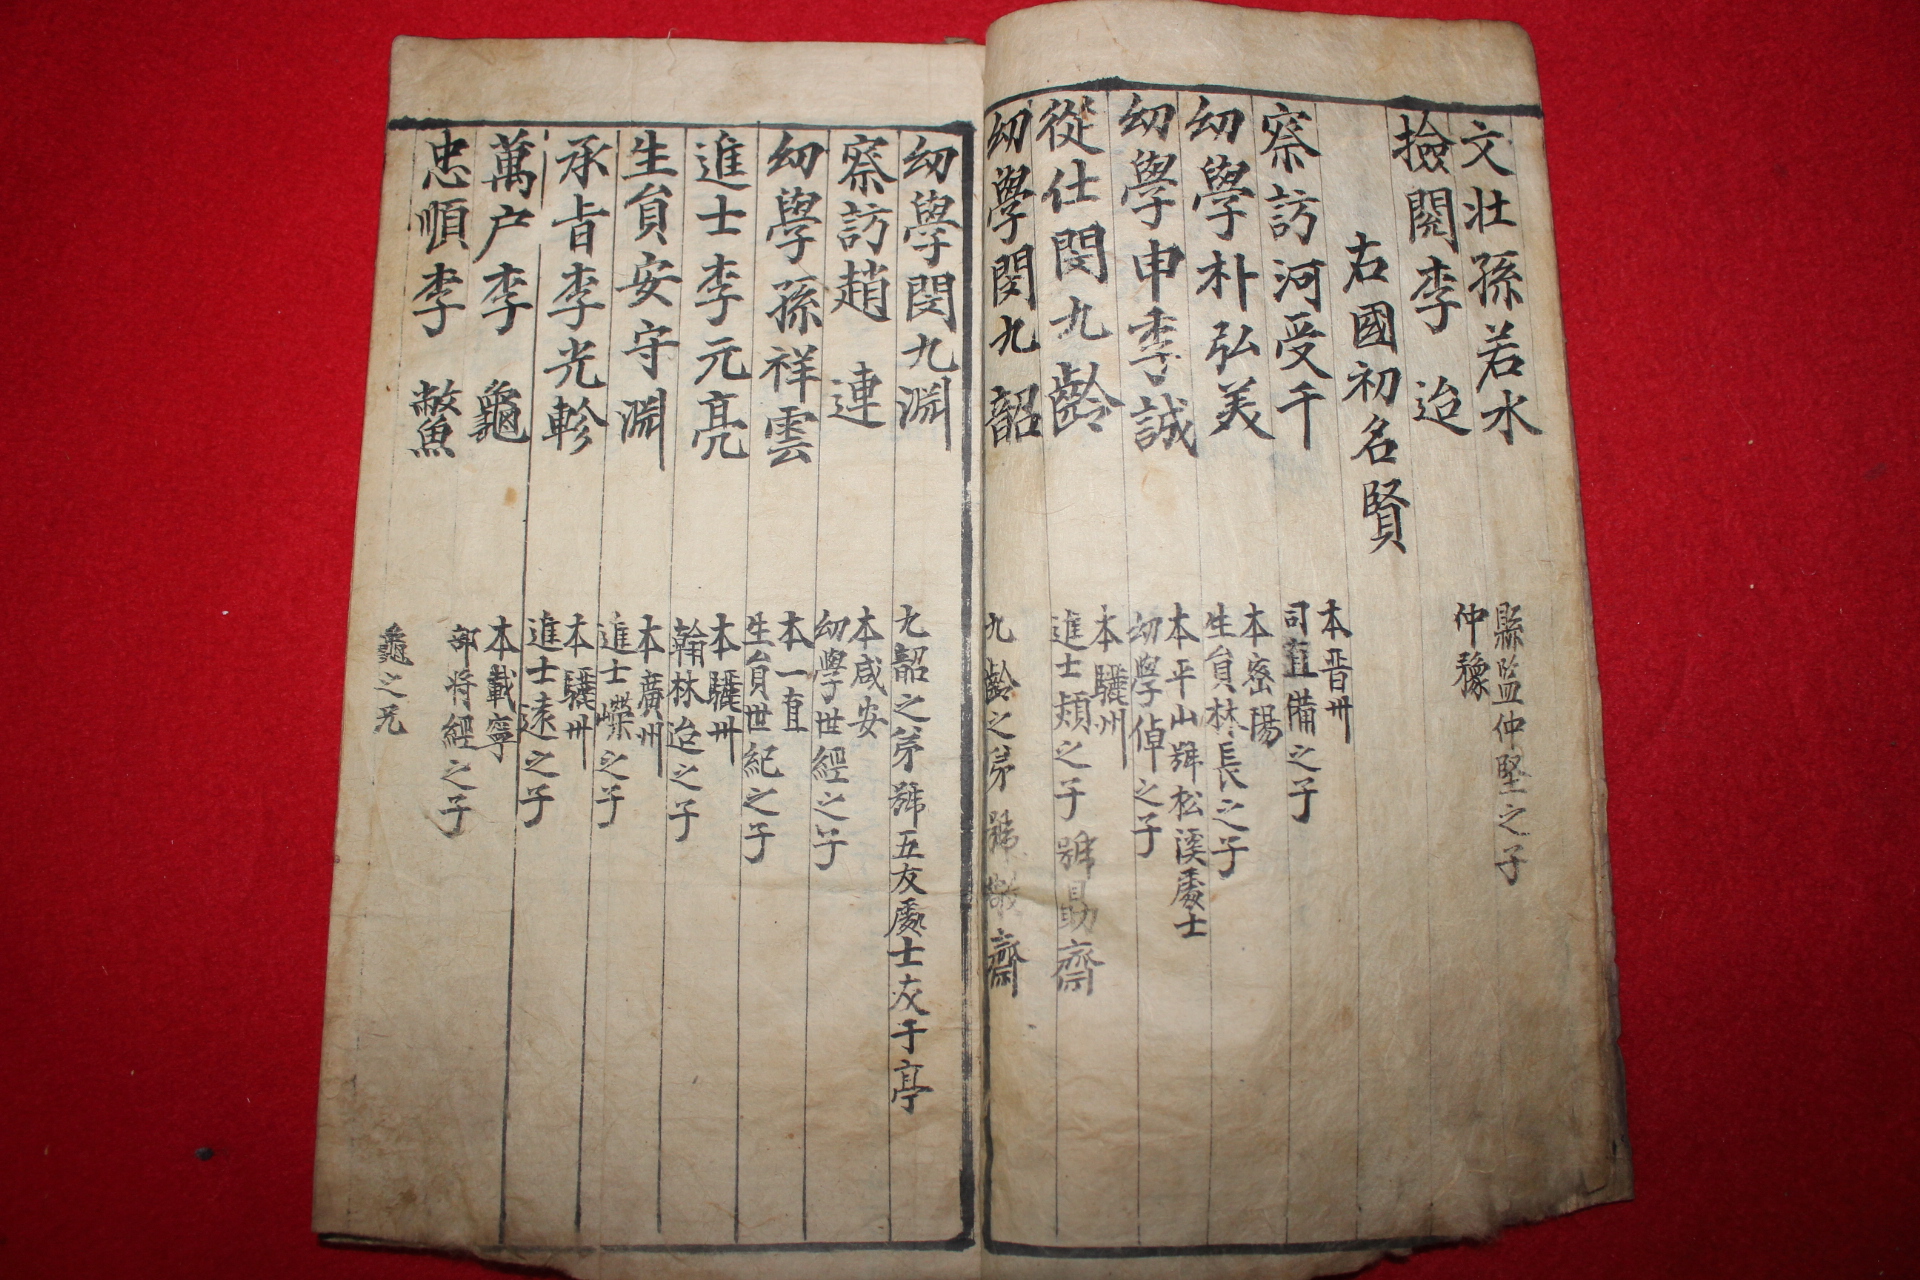 文壯孫若水
縣監仲堅之子
檢閱李迨
仲豫
右國初名賢
察訪河受千
本晋州
司直備之子
幼學朴弘美
本密陽
生員林長之子
幼學申季誠
本平山號松溪處士
幼學倬之子
從仕閔九齡
本驪州
進士頰之子號勖齋
幼學閔九韶
九齡之弟號 齋
幼學閔九淵
九韶之弟號五友處士友于亭
察訪趙連
本咸安
幼學世經之子
幼學孫祥雲
本一直
生員世紀之子
進士李元亮
本驪州
翰林迨之子
生員安守淵
本廣州
進士嶸之子
承旨李光軫
本驪州
進士遠之子
萬户李龜
本載寧
部将經之子
忠順李鱉
龜之兄